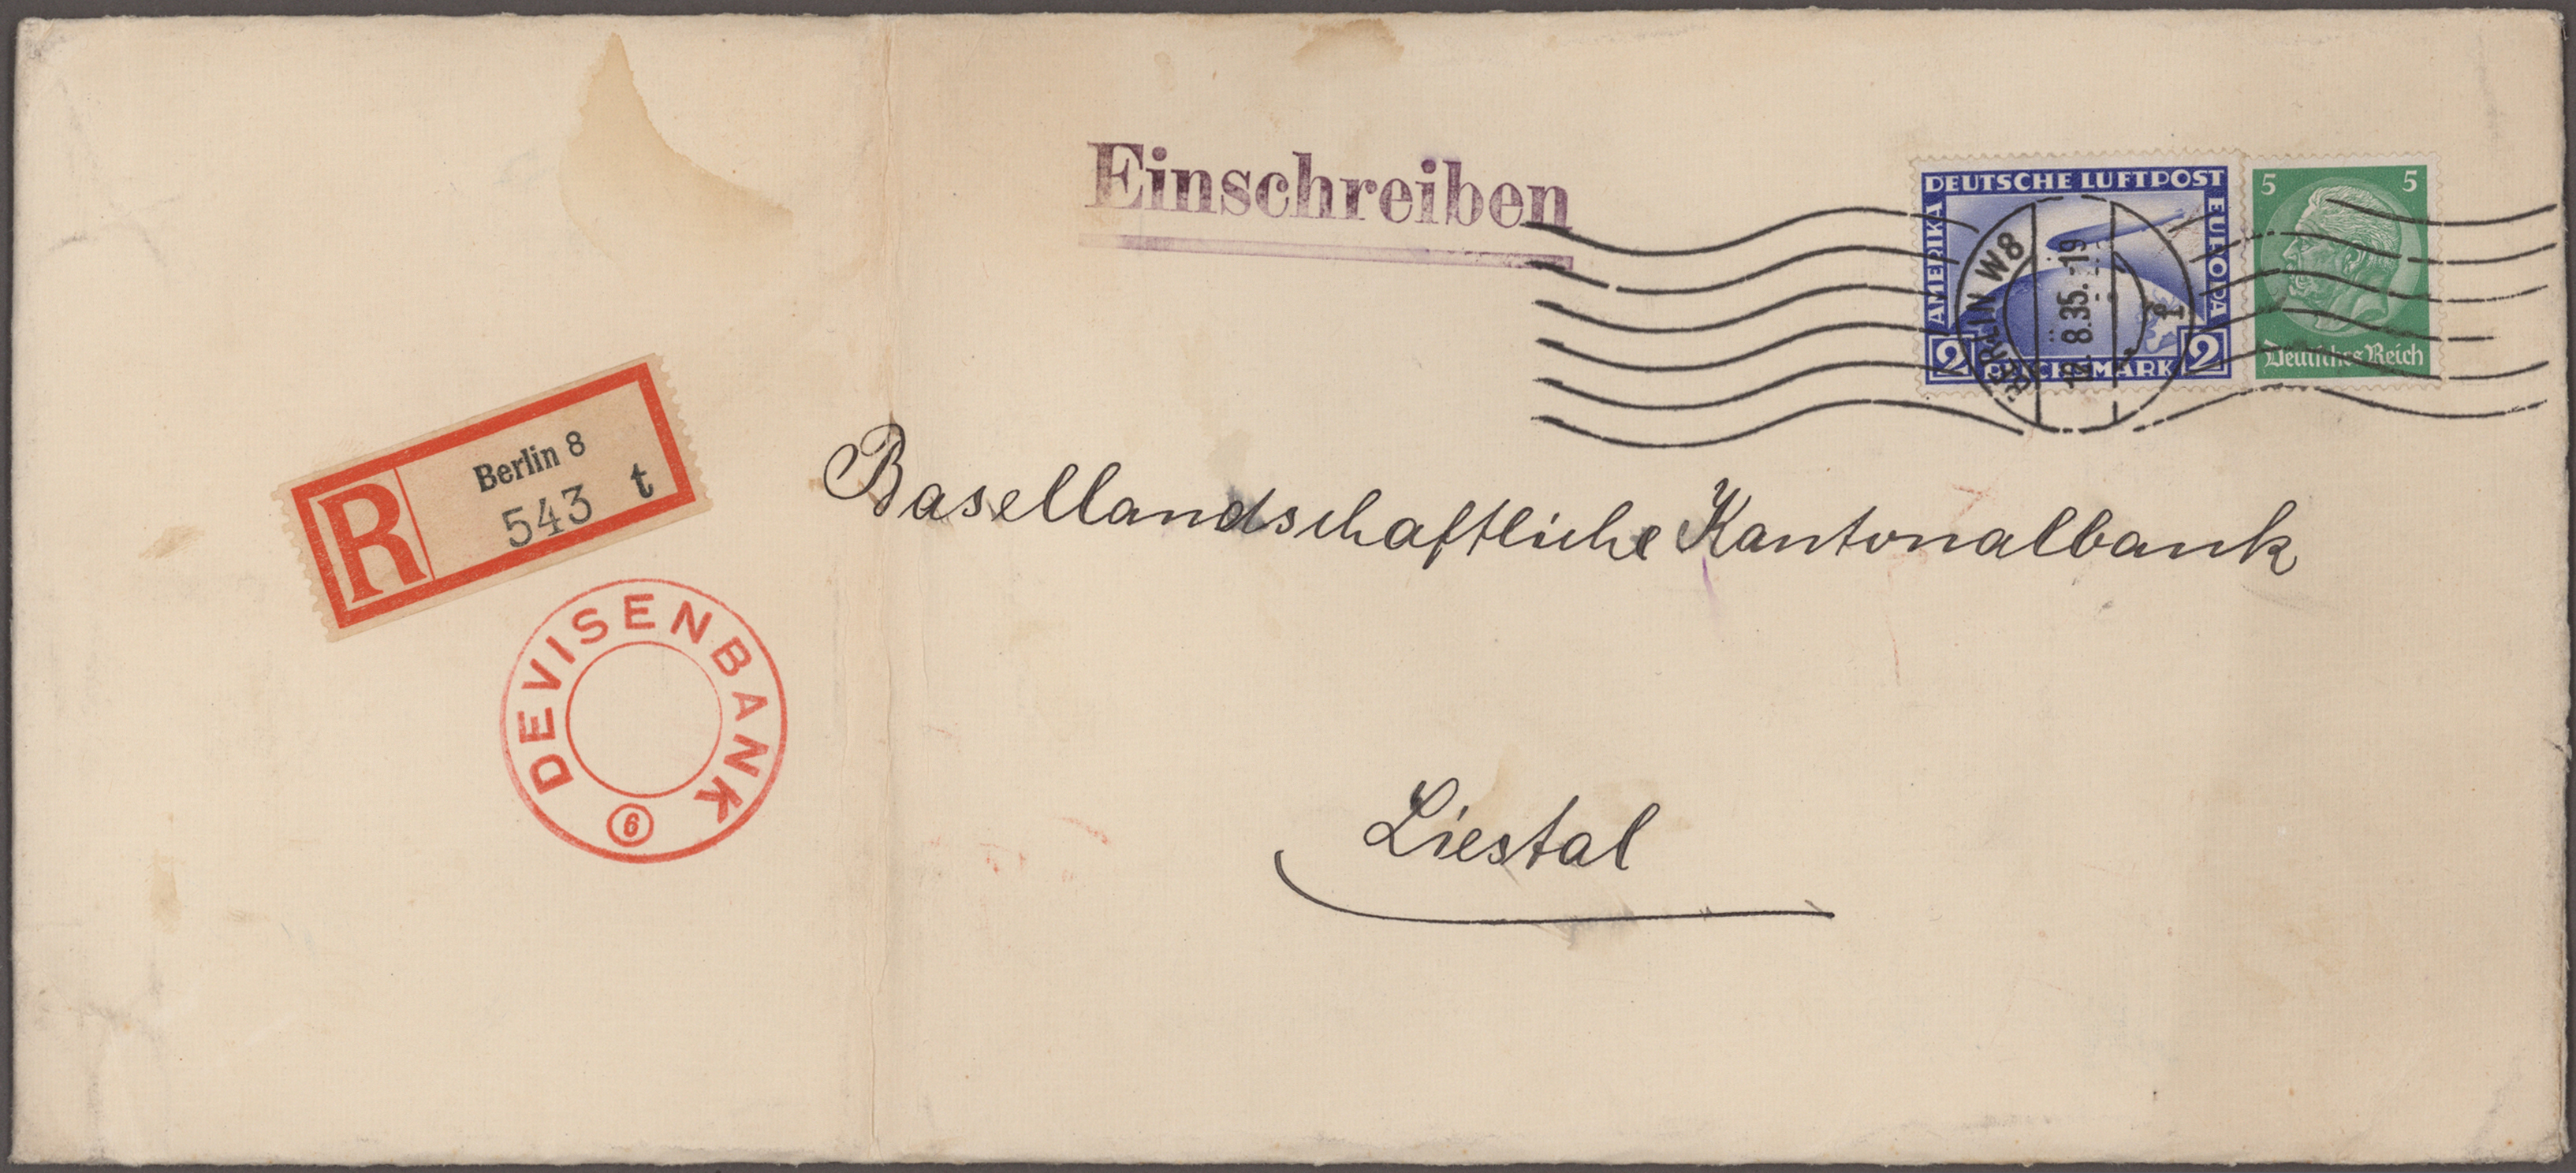 Einschreiben
DEUTSCHE LUFTPOST
AMERIKA
EUROPA
2 REICHSMARK 2
5 5
Deutsches Reich
BERLIN W8
12.8.35.-19
R
Berlin 8
543 t
Basellandschaftliche Kantonalbank
DEVISENBANK
6
Liestal